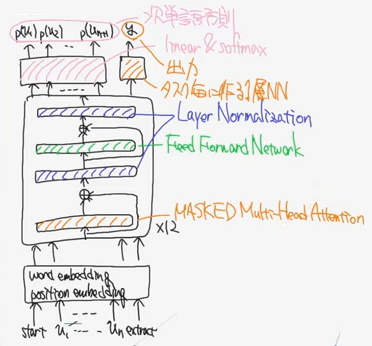 p(u₁) p(u₂) --- p(uₙ₊₁) 次単語予測
y
linear & softmax
出力
タスク毎に作る1層NN
Layer Normalization
Feed Forward Network
MASKED Multi-Head Attention
×12
word embedding
position embedding
start u₁ ---- uₙ extract